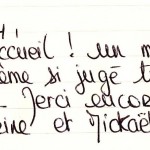 ccueil ! un m
ême si jugé t
. Merci encor
eine et Mickaël